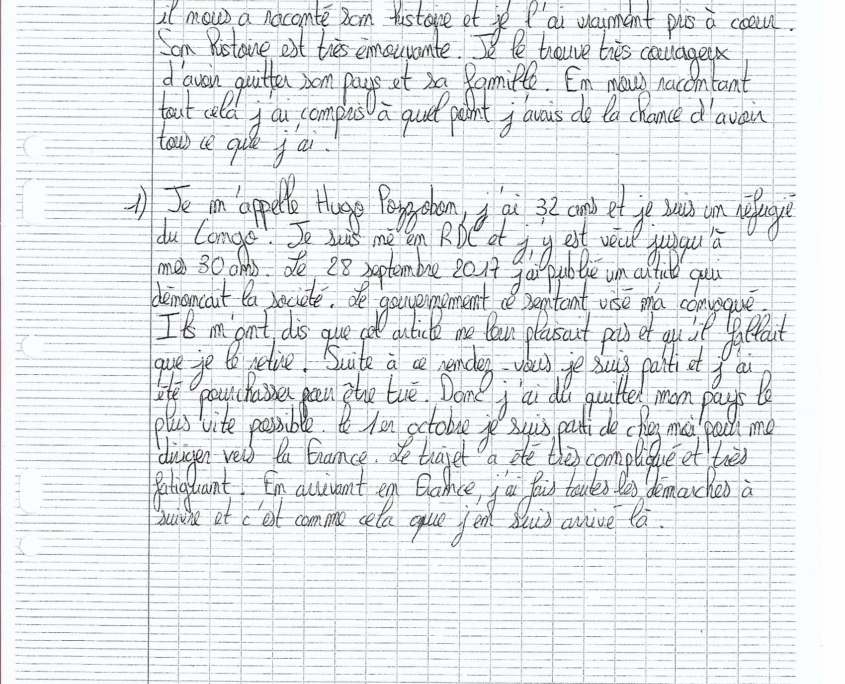 il nous a raconté son histoire et je l'ai vraiment pris à coeur.
Son histoire est très émouvante. Je le trouve très courageux
d'avoir quitter son pays et sa famille. En nous racontant
tout cela j'ai compris à quel point j'avais de la chance d'avoir
tous ce que j'ai.
1) Je m'appelle Hugo Pozzobon, j'ai 32 ans et je suis un réfugié
du Congo. Je suis né en RDC et j'y est vécu jusqu'à
mes 30 ans. Le 28 septembre 2017 j'ai publié un article qui
dénoncait la société. Le gouvernement ce sentant visé m'a convoqué.
Ils m'ont dis que cet article ne leur plaisait pas et qu'il fallait
que je le retire. Suite à ce rendez-vous je suis parti et j'ai
été pourchasser pour être tué. Donc j'ai du quitter mon pays le
plus vite possible. le 1er octobre je suis parti de chez moi pour me
diriger vers la France. Le trajet a été très compliqué et très
fatiguant. En arrivant en France, j'ai fais toutes les démarches à
suivre et c'est comme cela que j'en suis arrivé là.